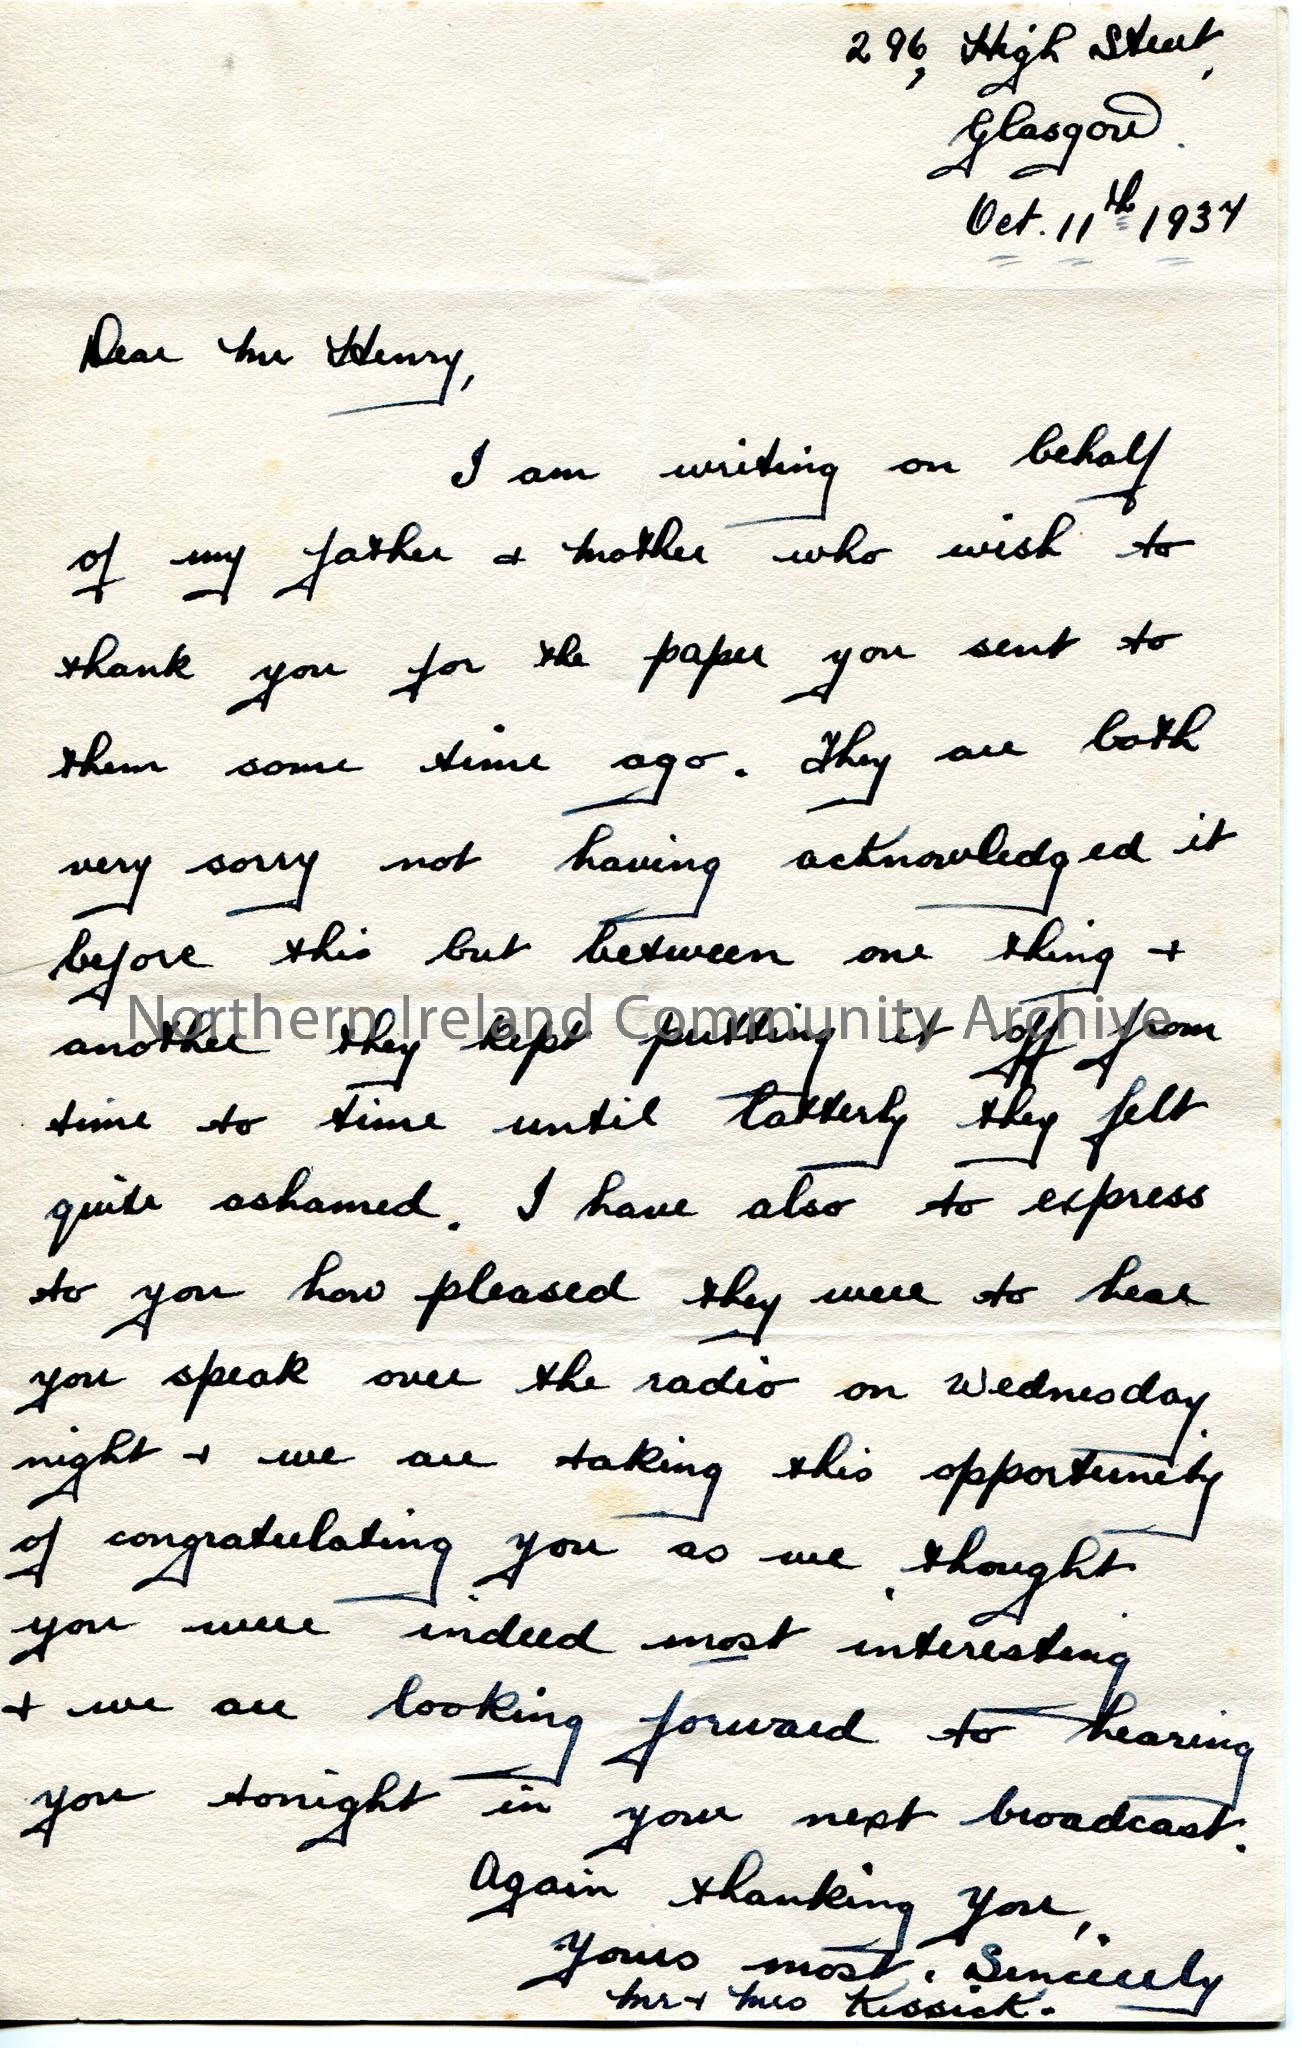 296, High Street,
Glasgow.
Oct. 11th 1937
Dear Mr Henry,
I am writing on behalf
of my father & mother who wish to
thank you for the paper you sent to
them some time ago. They are both
very sorry not having acknowledged it
before this but between one thing &
Northern Ireland Community Archive
another they kept putting it off from
time to time until latterly they felt
quite ashamed. I have also to express
to you how pleased they were to hear
you speak over the radio on Wednesday
night & we are taking this opportunity
of congratulating you as we thought
you were indeed most interesting
& we are looking forward to hearing
you tonight in your next broadcast.
Again thanking you,
Yours most Sincerely
Mr & Mrs Kissick.